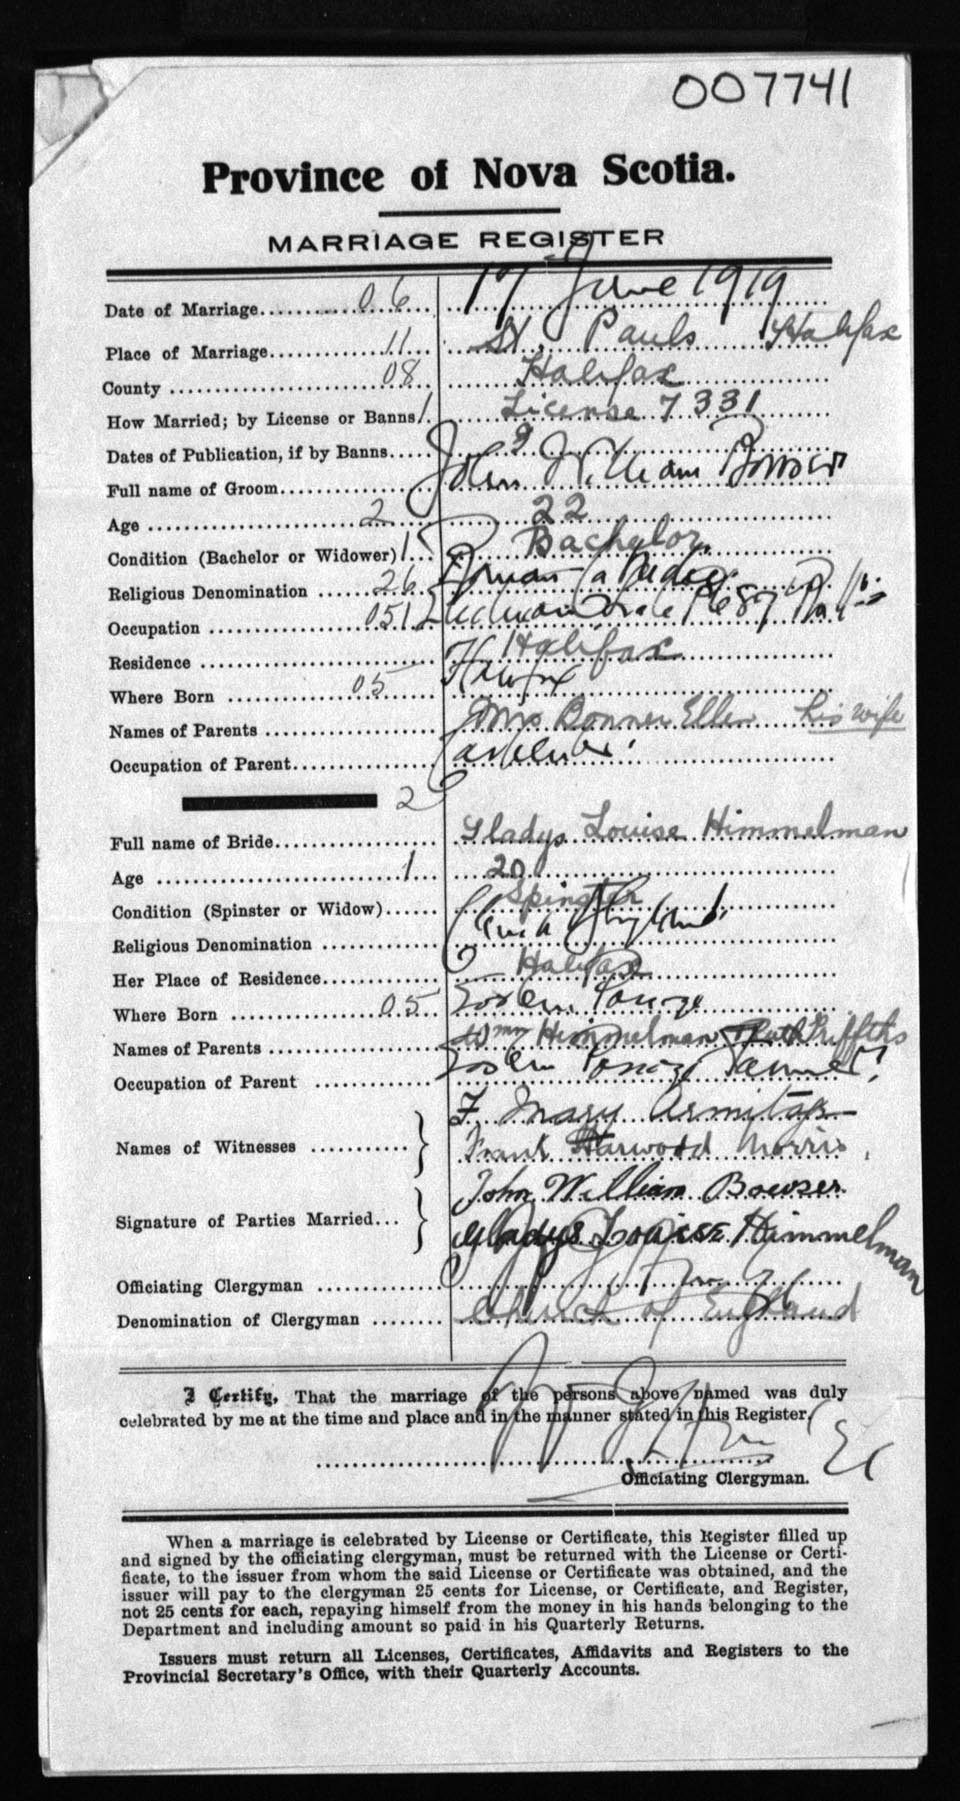 007741
Province of Nova Scotia.
MARRIAGE REGISTER
Date of Marriage 06 17 June 1919
Place of Marriage 11 St. Pauls Halifax
County 08 Halifax
How Married; by License or Banns 1 License 7331
Dates of Publication, if by Banns
Full name of Groom John William
Age 2 22
Condition (Bachelor or Widower) 1 Bachelor
Religious Denomination 26 Roman
Occupation 051
Residence Halifax
Where Born 05 Halifax
Names of Parents Ellen his wife
Occupation of Parent
2
Full name of Bride Gladys Louise Himmelman
Age 1 20
Condition (Spinster or Widow) Spinster
Religious Denomination Church England
Her Place of Residence Halifax
Where Born 05
Names of Parents Wm Himmelman Griffiths
Occupation of Parent
Names of Witnesses F. Mary Armitage
Frank Harwood Morris
Signature of Parties Married John William Bowser
Gladys Louise Himmelman
Officiating Clergyman
Denomination of Clergyman Church of England
I Certify, That the marriage of the persons above named was duly
celebrated by me at the time and place and in the manner stated in this Register.
Officiating Clergyman.
When a marriage is celebrated by License or Certificate, this Register filled up
and signed by the officiating clergyman, must be returned with the License or Certi-
ficate, to the issuer from whom the said License or Certificate was obtained, and the
issuer will pay to the clergyman 25 cents for License, or Certificate, and Register,
not 25 cents for each, repaying himself from the money in his hands belonging to the
Department and including amount so paid in his Quarterly Returns.
Issuers must return all Licenses, Certificates, Affidavits and Registers to the
Provincial Secretary's Office, with their Quarterly Accounts.